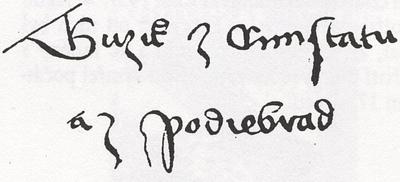 Girzik z Cunstatu
a z podiebrad